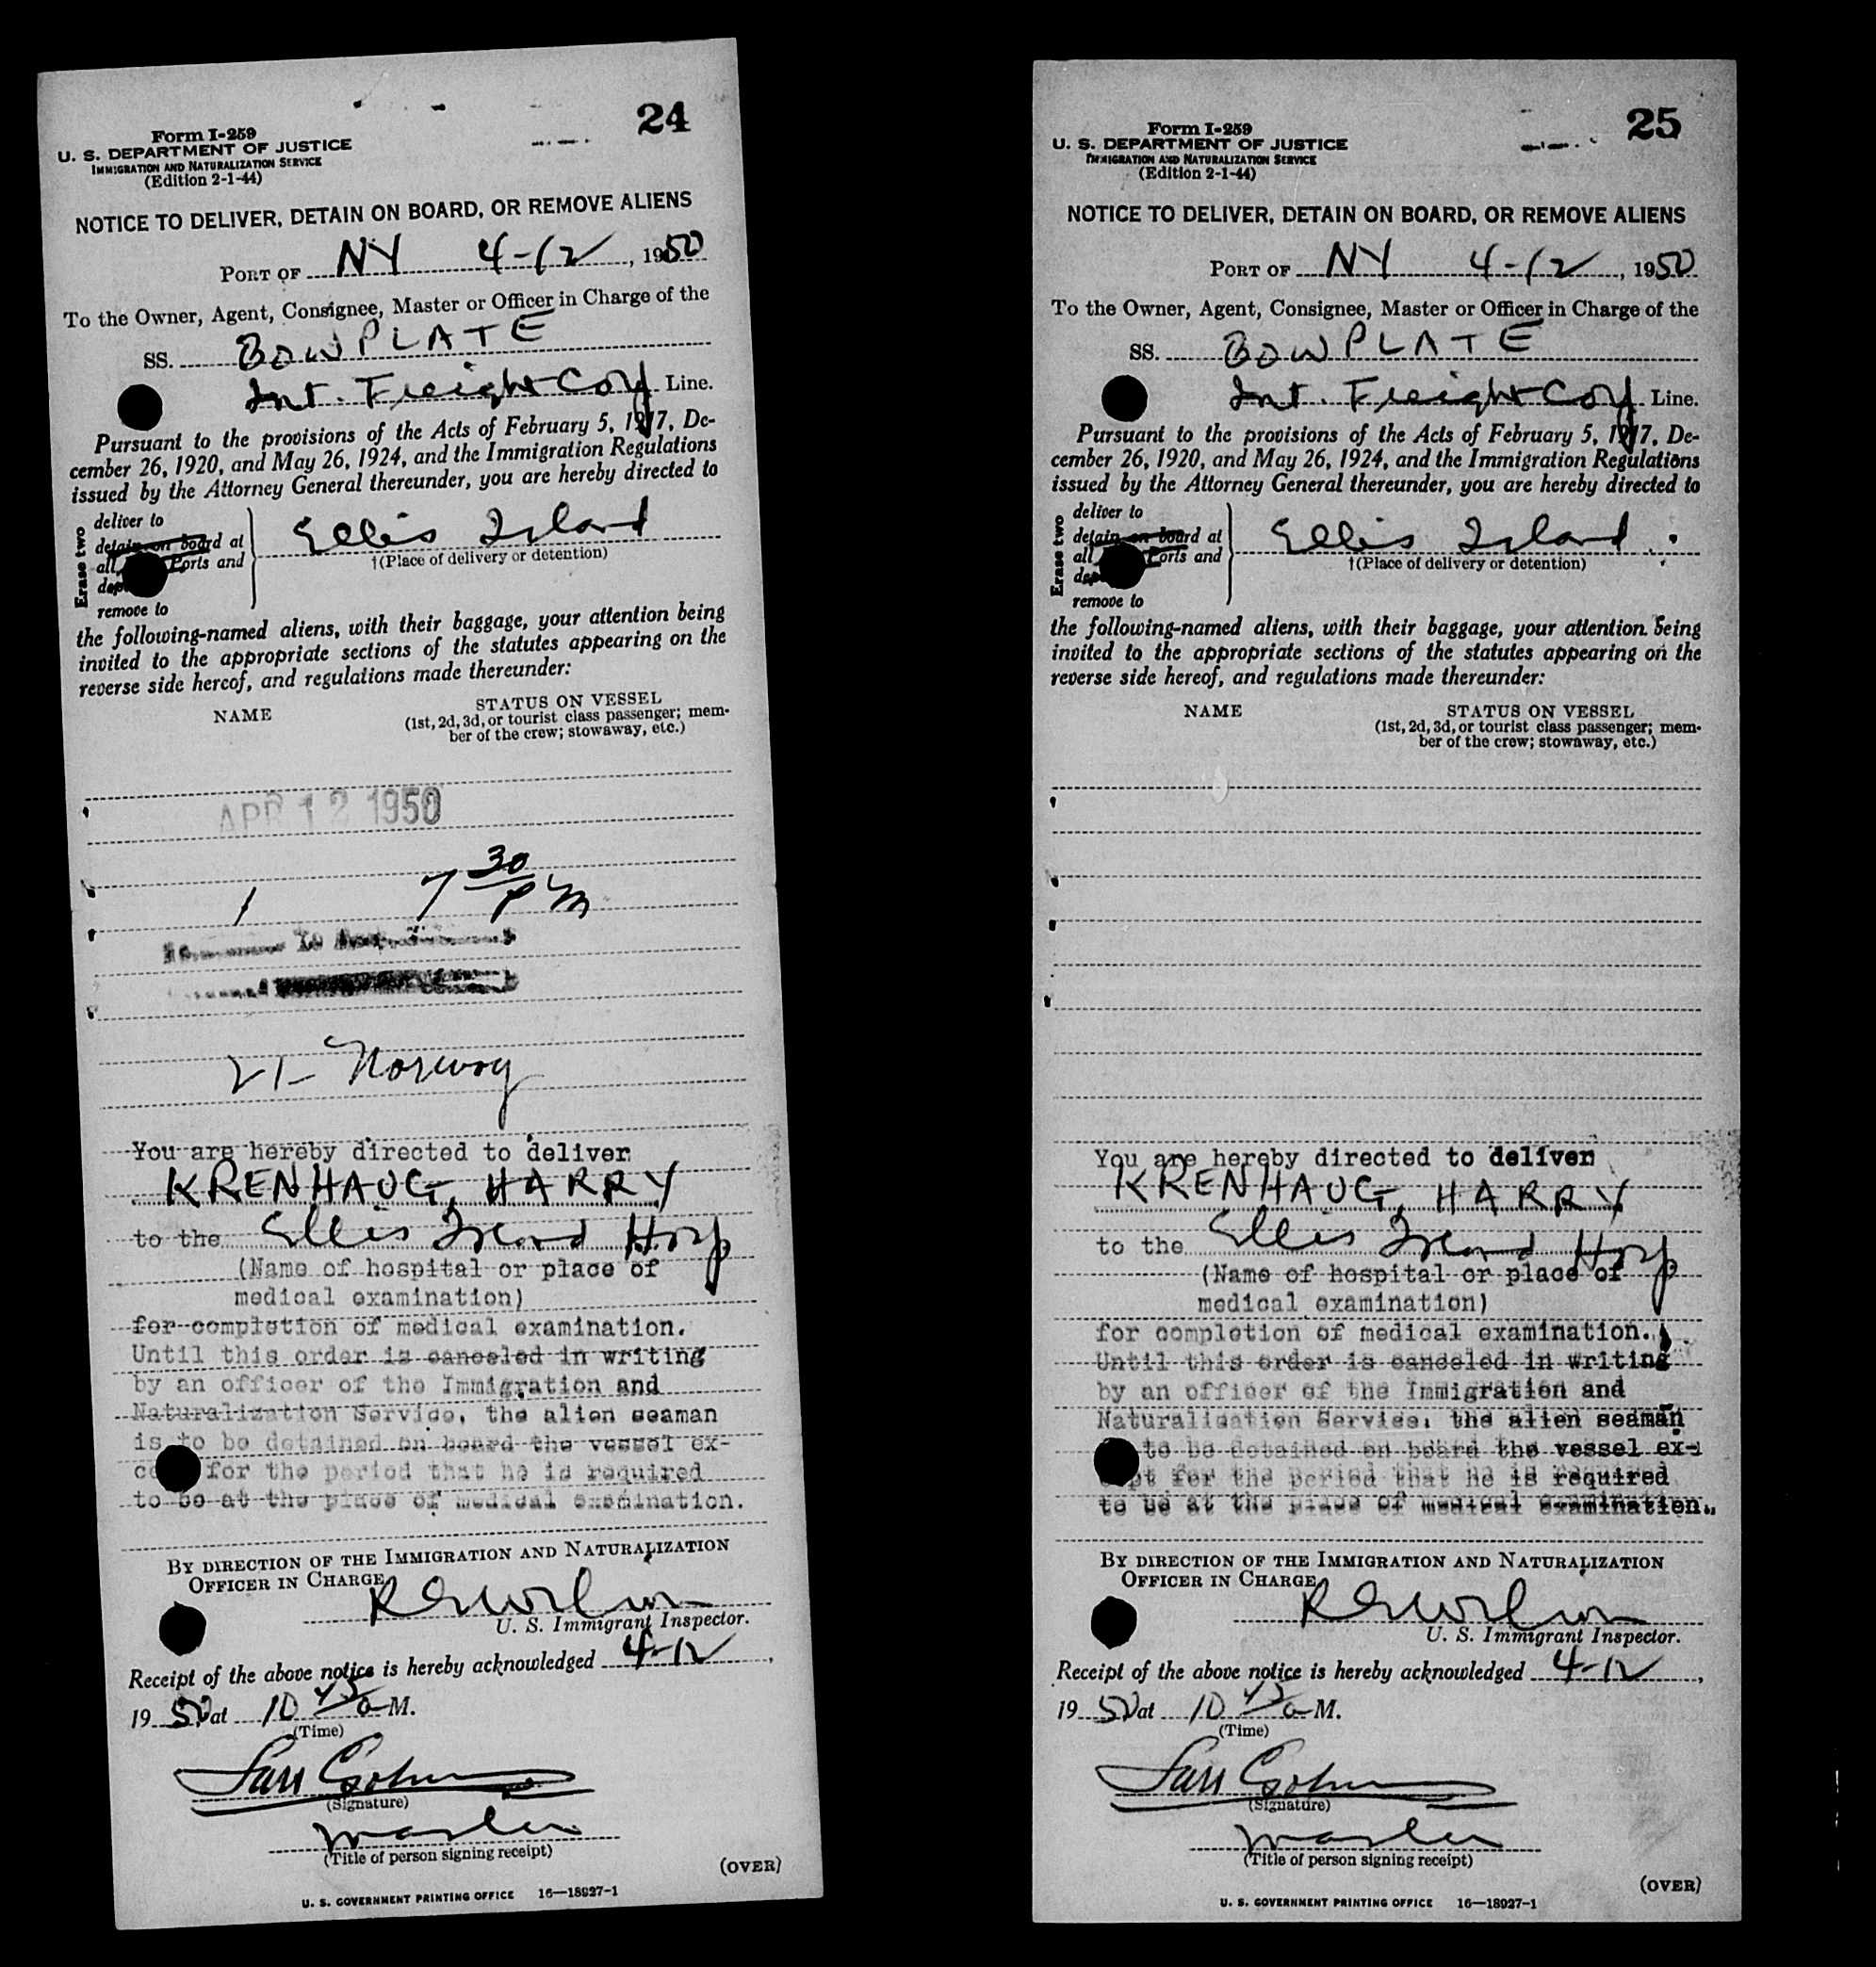 24
Form I-259
U. S. DEPARTMENT OF JUSTICE
IMMIGRATION AND NATURALIZATION SERVICE
(Edition 2-1-44)
NOTICE TO DELIVER, DETAIN ON BOARD, OR REMOVE ALIENS
PORT OF NY 4-12, 1950
To the Owner, Agent, Consignee, Master or Officer in Charge of the
SS. BOWPLATE
Int. Freight Corp Line.
Pursuant to the provisions of the Acts of February 5, 1917, De-
cember 26, 1920, and May 26, 1924, and the Immigration Regulations
issued by the Attorney General thereunder, you are hereby directed to
Erase two
deliver to
detain on board at
all Ports and
remove to
Ellis Island
†(Place of delivery or detention)
the following-named aliens, with their baggage, your attention being
invited to the appropriate sections of the statutes appearing on the
reverse side hereof, and regulations made thereunder:
NAME
STATUS ON VESSEL
(1st, 2d, 3d, or tourist class passenger; mem-
ber of the crew; stowaway, etc.)
APR 12 1950
1 7 30 PM
21- Norway
You are hereby directed to deliver
KRENHAUG, HARRY
to the Ellis Island Hosp
(Name of hospital or place of
medical examination)
for completion of medical examination.
Until this order is canceled in writing
by an officer of the Immigration and
Naturalization Service, the alien seaman
is to be detained on board the vessel ex-
for the period that he is required
to be at the place of medical examination.
BY DIRECTION OF THE IMMIGRATION AND NATURALIZATION
OFFICER IN CHARGE
U. S. Immigrant Inspector.
Receipt of the above notice is hereby acknowledged 4-12,
1950 at 10 45 a M.
(Time)
(Signature)
Master
(Title of person signing receipt)
(OVER)
U. S. GOVERNMENT PRINTING OFFICE 16—18927-1
25
Form I-259
U. S. DEPARTMENT OF JUSTICE
IMMIGRATION AND NATURALIZATION SERVICE
(Edition 2-1-44)
NOTICE TO DELIVER, DETAIN ON BOARD, OR REMOVE ALIENS
PORT OF NY 4-12, 1950
To the Owner, Agent, Consignee, Master or Officer in Charge of the
SS. BOWPLATE
Int. Freight Corp Line.
Pursuant to the provisions of the Acts of February 5, 1917, De-
cember 26, 1920, and May 26, 1924, and the Immigration Regulations
issued by the Attorney General thereunder, you are hereby directed to
Erase two
deliver to
detain on board at
all Ports and
remove to
Ellis Island
†(Place of delivery or detention)
the following-named aliens, with their baggage, your attention being
invited to the appropriate sections of the statutes appearing on the
reverse side hereof, and regulations made thereunder:
NAME
STATUS ON VESSEL
(1st, 2d, 3d, or tourist class passenger; mem-
ber of the crew; stowaway, etc.)
You are hereby directed to deliver
KRENHAUG, HARRY
to the Ellis Island Hosp
(Name of hospital or place of
medical examination)
for completion of medical examination.
Until this order is canceled in writing
by an officer of the Immigration and
Naturalization Service, the alien seaman
to be detained on board the vessel ex-
for the period that he is required
to be at the place of medical examination.
BY DIRECTION OF THE IMMIGRATION AND NATURALIZATION
OFFICER IN CHARGE
U. S. Immigrant Inspector.
Receipt of the above notice is hereby acknowledged 4-12,
1950 at 10 45 a M.
(Time)
(Signature)
Master
(Title of person signing receipt)
(OVER)
U. S. GOVERNMENT PRINTING OFFICE 16—18927-1